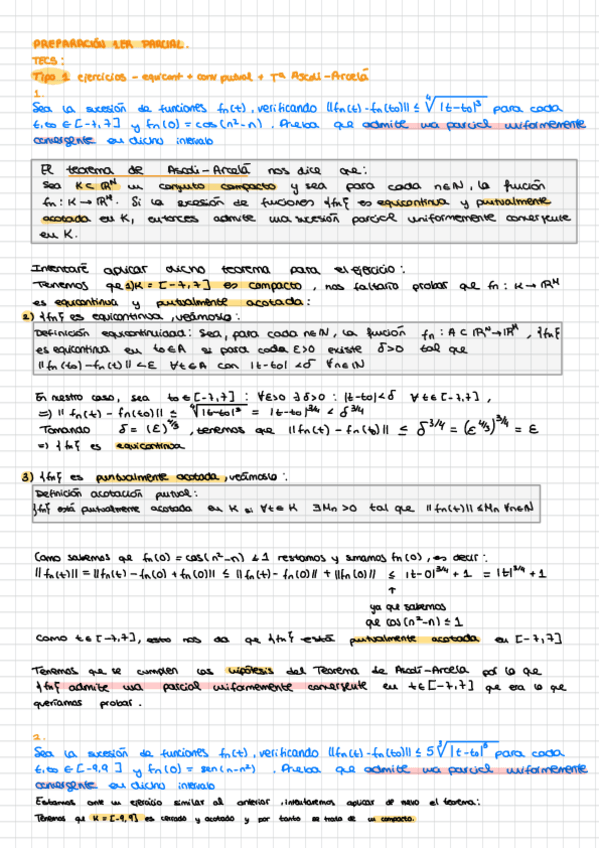 PREPARACIÓN 1ER PARCIAL.
TECS:
Tipo 1 ejercicios - equicont + cont puntual + Tª Ascoli-Arcelá
1.
Sea la sucesión de funciones fn(t), verificando ||fn(t)-fn(t0)|| ≤ ⁴√|t-t0|³ para cada
t,t0 ∈ [-7,7] y fn(0) = cos(n²-n). Prueba que admite una parcial uniformemente
convergente en dicho intervalo
El teorema de Ascoli-Arcelá nos dice que:
Sea K⊂ℝᴺ un conjunto compacto y sea para cada n∈ℕ, la función
fn: K→ℝᴹ. Si la sucesión de funciones {fn} es equicontinua y puntualmente
acotada en K, entonces admite una sucesión parcial uniformemente convergente
en K.
Intentaré aplicar dicho teorema para el ejercicio:
Tenemos que 1) K = [-7,7] es compacto, nos faltaría probar que fn: K→ℝᴹ
es equicontinua y puntualmente acotada:
2) {fn} es equicontinua, veámoslo:
Definición equicontinuidad: Sea, para cada n∈ℕ, la función fn: A⊂ℝᴺ→ℝᴹ, {fn}
es equicontinua en t0∈A si para cada ε>0 existe δ>0 tal que
||fn(t0)-fn(t)|| <ε ∀t∈A con |t-t0| <δ ∀n∈ℕ
En nuestro caso, sea t0∈[-7,7] : ∀ε>0 ∃δ>0 : |t-t0|<δ ∀t∈[-7,7],
=> || fn(t) - fn(t0)|| ≤ ⁴√|t-t0|³ = |t-t0|^3/4 < δ^3/4
Tomando δ = (ε)^4/3, tenemos que ||fn(t) - fn(t0)|| ≤ δ^3/4 = (ε^4/3)^3/4 = ε
=> {fn} es equicontinua
3) {fn} es puntualmente acotada, veámoslo:
Definición acotación puntual:
{fn} está puntualmente acotada en K si ∀t∈K ∃Mn >0 tal que ||fn(t)|| ≤Mn ∀n∈ℕ
Como sabemos que fn(0) = cos(n²-n) ≤ 1 restamos y sumamos fn(0), es decir:
||fn(t)|| = ||fn(t) - fn(0) + fn(0)|| ≤ ||fn(t) - fn(0)|| + ||fn(0)|| ≤ |t-0|^3/4 + 1 = |t|^3/4 + 1
↑
ya que sabemos
que cos(n²-n) ≤ 1
Como t∈[-7,7], esto nos da que {fn} está puntualmente acotada en [-7,7]
Tenemos que se cumplen las hipótesis del Teorema de Ascoli-Arcela por lo que
{fn} admite una parcial uniformemente convergente en t∈[-7,7] que era lo que
queríamos probar.
2.
Sea la sucesión de funciones fn(t), verificando ||fn(t)-fn(t0)|| ≤ 5 √|t-t0| para cada
t,t0 ∈ [-9,9] y fn(0) = sen(n-n²). Prueba que admite una parcial uniformemente
convergente en dicho intervalo
Estamos ante un ejercicio similar al anterior, intentaremos aplicar de nuevo el teorema:
Tenemos que K = [-9,9] es cerrado y acotado y por tanto se trata de un compacto.